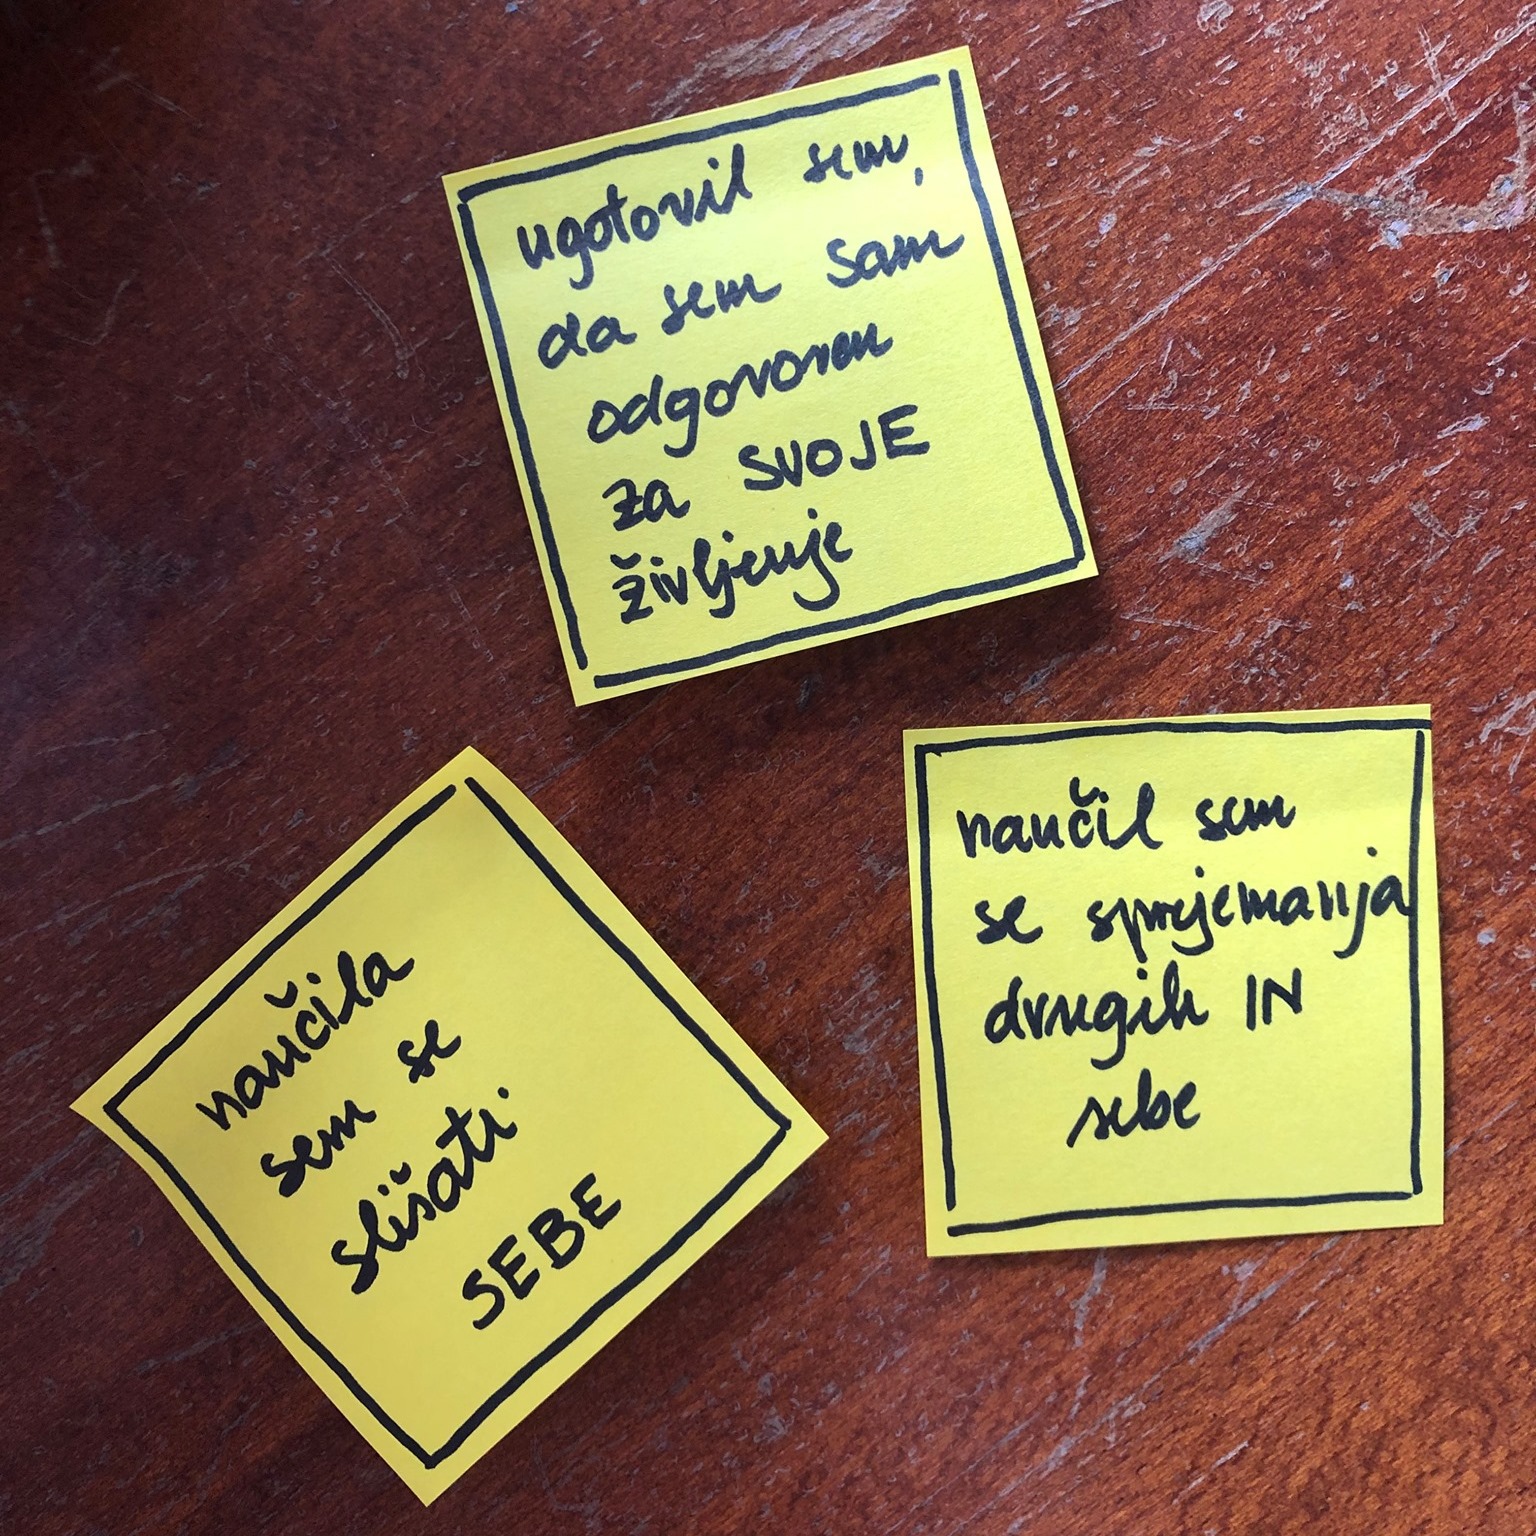 ugotovil sem,
da sem sam
odgovoren
za SVOJE
življenje
naučila
sem se
slišati
SEBE
naučil sem
se sprejemanja
drugih IN
sebe